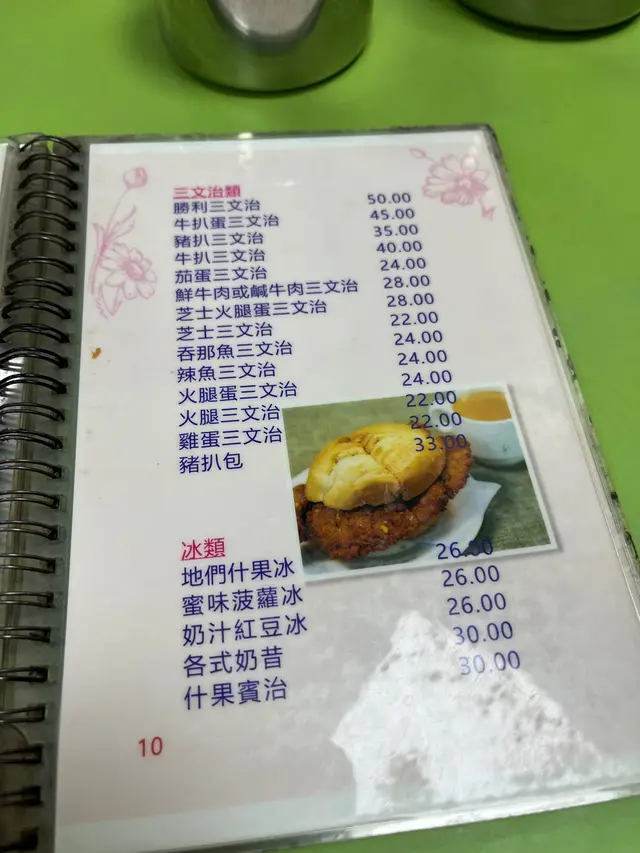 三文治類
勝利三文治 50.00
牛扒蛋三文治 45.00
豬扒三文治 35.00
牛扒三文治 40.00
茄蛋三文治 24.00
鮮牛肉或鹹牛肉三文治 28.00
芝士火腿蛋三文治 28.00
芝士三文治 22.00
吞那魚三文治 24.00
辣魚三文治 24.00
火腿蛋三文治 24.00
火腿三文治 22.00
雞蛋三文治 22.00
豬扒包 33.00
冰類
地們什果冰 26.00
蜜味菠蘿冰 26.00
奶汁紅豆冰 26.00
各式奶昔 30.00
什果賓治 30.00
10